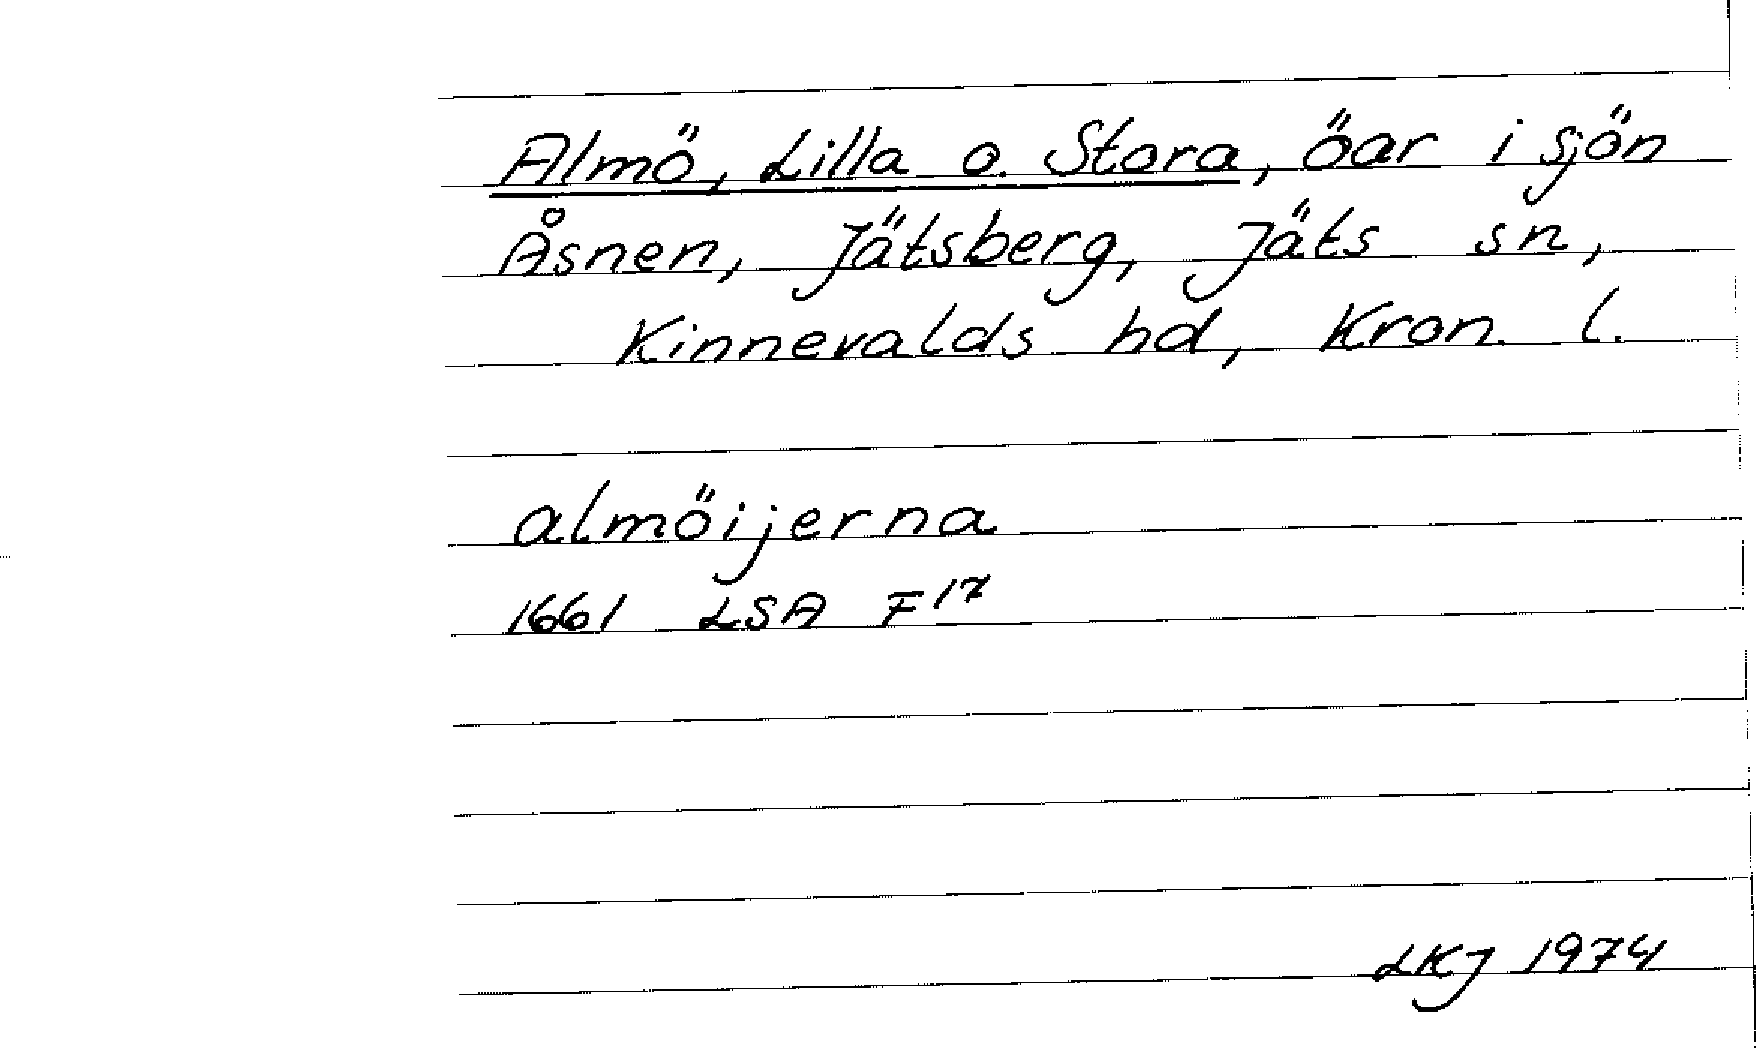 Almö, Lilla o. Stora, öar i sjön
Åsnen, Jätsberg, Jäts sn,
Kinnevalds hd, Kron. l.
almöijerna
1661 LSA F 17
LKJ 1974